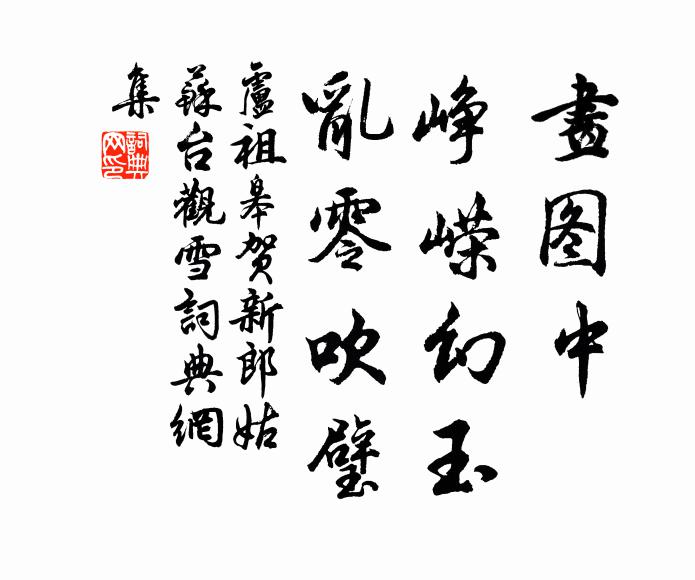 畫图中
峥嵘幻玉
亂零吹璧
盧祖皋贺新郎姑
蘇台觀雪詞典網
集
詞典网印